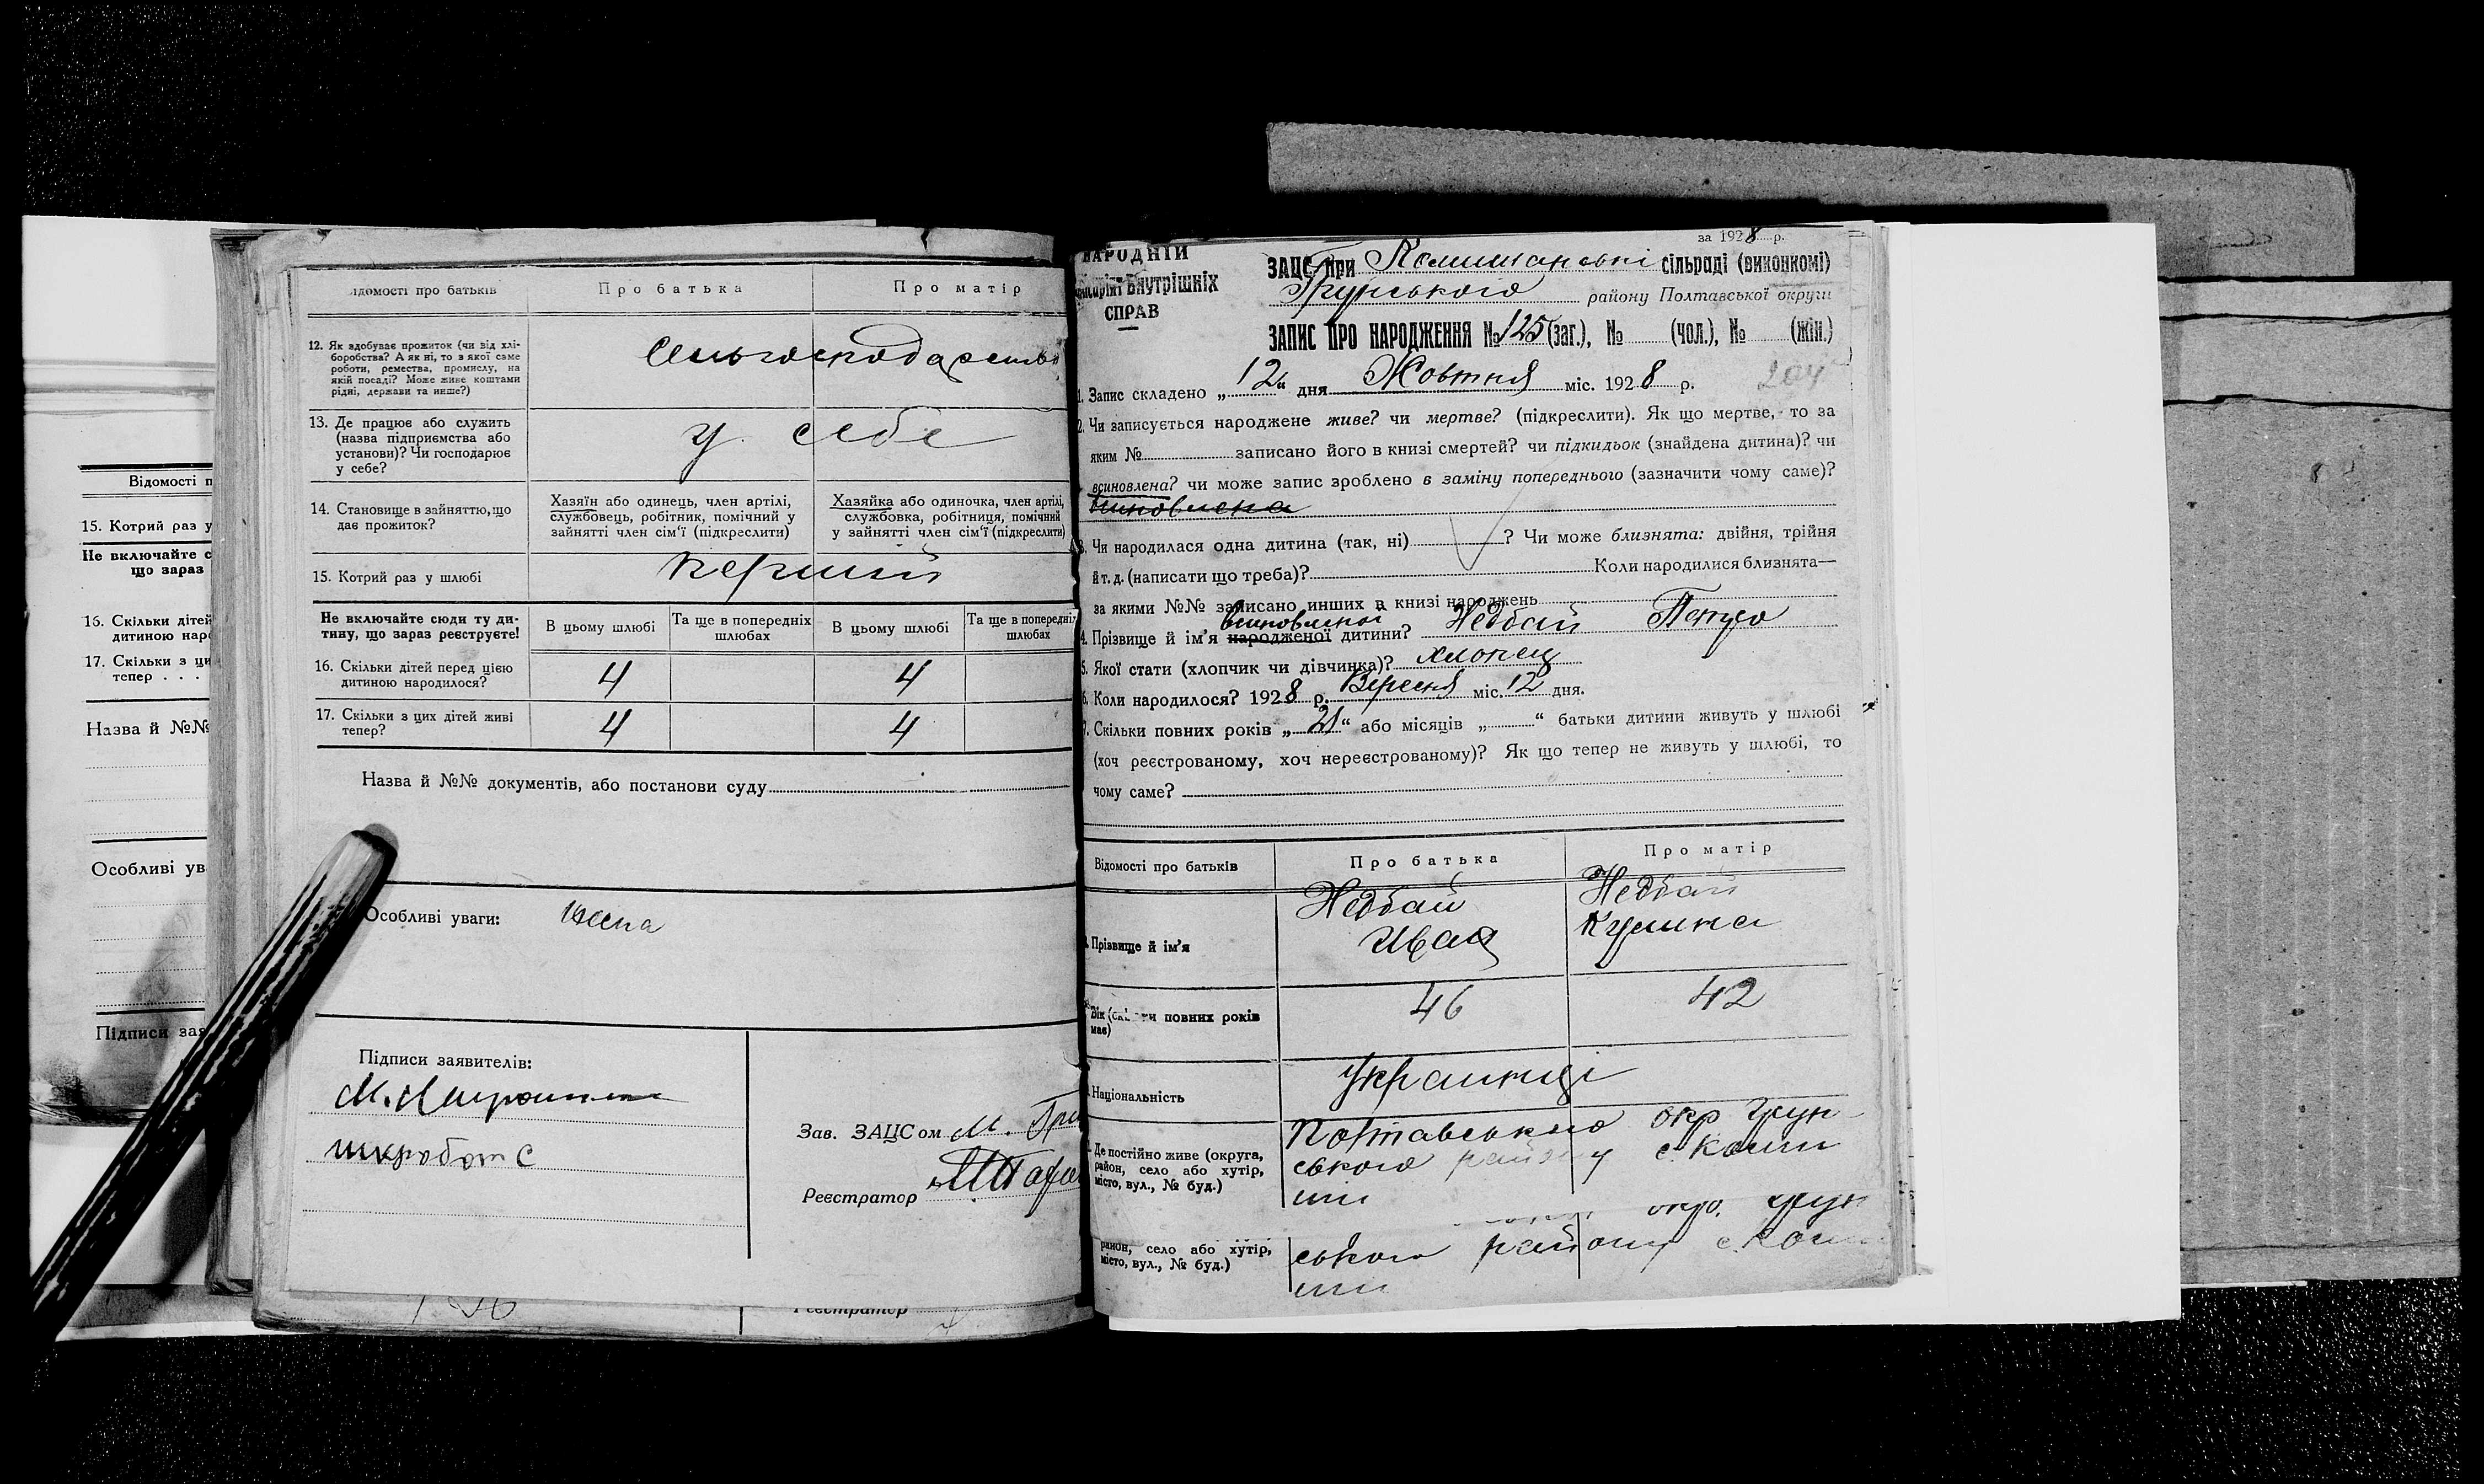 Відомості п
15. Котрий раз у
Не включайте с
що зараз
16. Скільки дітей
дитиною наро
17. Скільки з ци
тепер . . .
Назва й №№
Особливі ув
Підписи зая
ідомості про батьків
Про батька
Про матір
12. Як здобуває прожиток (чи від хлі-
боробства? А як ні, то з якої саме
роботи, ремества, промислу, на
якій посаді? Може живе коштами
рідні, держави та инше?)
Сельгосподарство
13. Де працює або служить
(назва підприємства або
установи)? Чи господарює
у себе?
у себе
14. Становище в зайняттю, що
дає прожиток?
Хазяїн або одинець, член артілі,
службовець, робітник, помічний у
зайнятті член сім'ї (підкреслити)
Хазяйка або одиночка, член артілі,
службовка, робітниця, помічний
у зайнятті член сім'ї (підкреслити)
15. Котрий раз у шлюбі
перший
Не включайте сюди ту ди-
тину, що зараз реєструєте!
В цьому шлюбі
Та ще в попередніх
шлюбах
В цьому шлюбі
Та ще в попередніх
шлюбах
16. Скільки дітей перед цією
дитиною народилося?
4
4
17. Скільки з цих дітей живі
тепер?
4
4
Назва й №№ документів, або постанови суду
Особливі уваги:
Підписи заявителів:
Зав. ЗАЦСом М. Гри
Реєстратор
Реєстратор
НАРОДНІЙ
Внутрішніх
СПРАВ
за 1928 р.
ЗАЦС при сільраді (виконкомі)
Грунського району Полтавської округи
ЗАПИС ПРО НАРОДЖЕННЯ №125 (заг.), № (чол.), № (жін.)
204
1. Запис складено „12“ дня Жовтня міс. 1928 р.
2. Чи записується народжене живе? чи мертве? (підкреслити). Як що мертве, то за
яким № записано його в книзі смертей? чи підкидьок (знайдена дитина)? чи
всиновлена? чи може запис зроблено в заміну попереднього (зазначити чому саме)?
всиновлена
3. Чи народилася одна дитина (так, ні) ? Чи може близнята: двійня, трійня
й т. д. (написати що треба)? Коли народилися близнята—
за якими №№ записано инших в книзі народжень
всиновленої
4. Прізвище й ім'я народженої дитини? Недбай Петро
5. Якої стати (хлопчик чи дівчинка)? хлопец
6. Коли народилося? 1928 р. Вересня міс. 12 дня.
7. Скільки повних років „21“ або місяців „ “ батьки дитини живуть у шлюбі
(хоч реєстрованому, хоч нереєстрованому)? Як що тепер не живуть у шлюбі, то
чому саме?
Відомості про батьків
Про батька
Про матір
Прізвище й ім'я
Недбай
Иван
Недбай
Кулина
Вік (скільки повних років
має)
46
42
Національність
Украинці
Де постійно живе (округа,
район, село або хутір,
місто, вул., № буд.)
Полтавського окр Грун
ського району с. Коми
ши
окр. Грун
район, село або хутір,
місто, вул., № буд.)
ського району с. Коми
ши